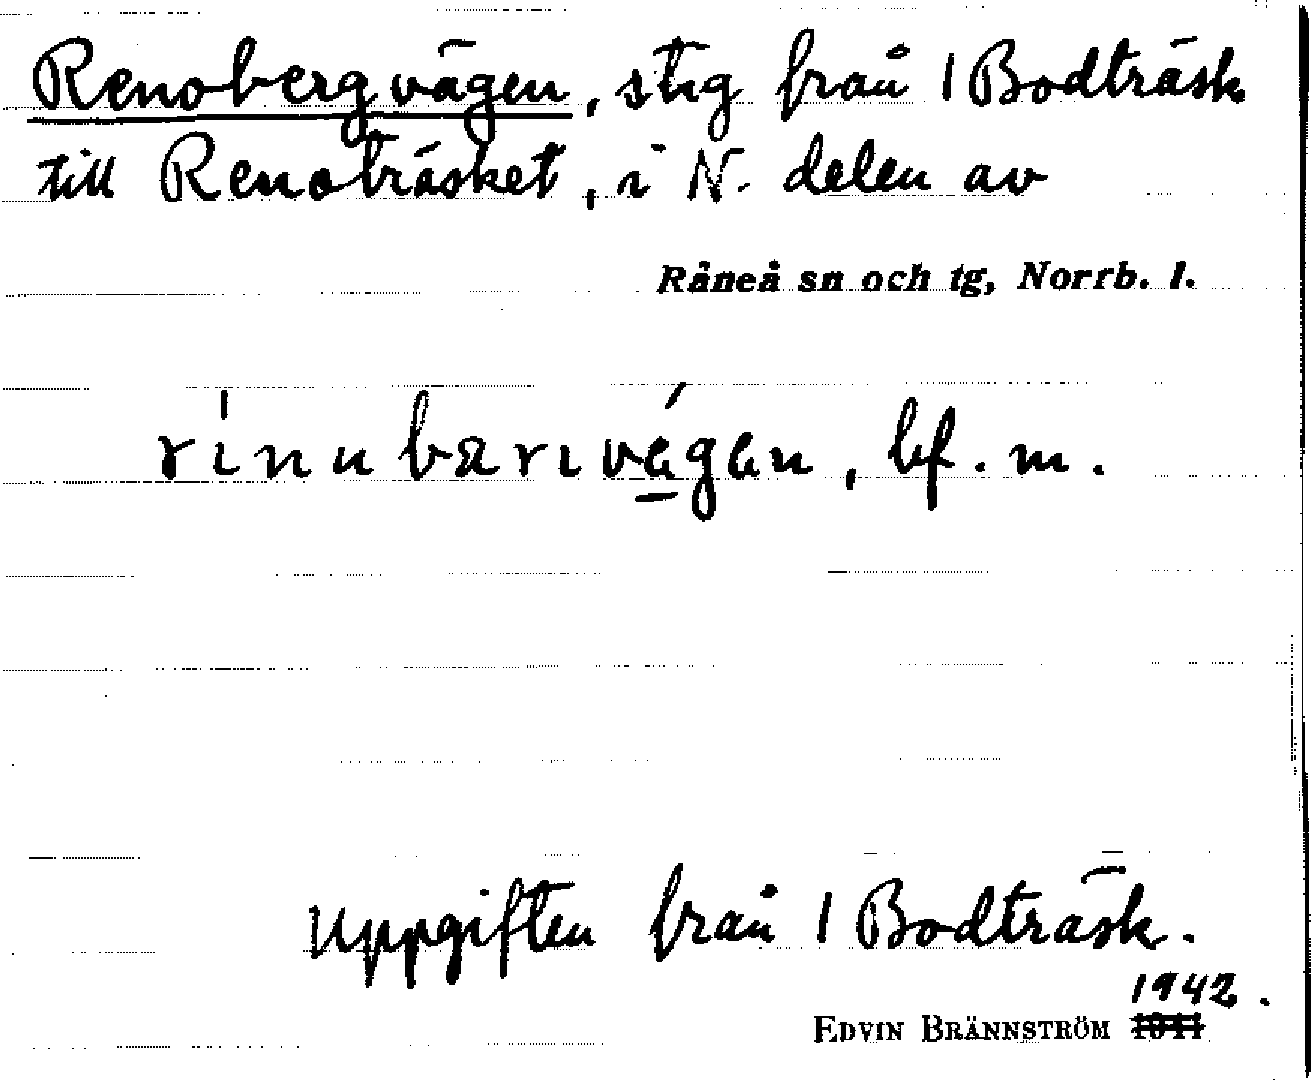 Renobergvägen, stig från 1 Bodträsk
till Renoträsket, i N. delen av
Råneå sn och tg, Norrb. l.
rinubærıvégan, bf. m.
Uppgiften från 1 Bodträsk.
1942.
EDVIN BRÄNNSTRÖM 1941